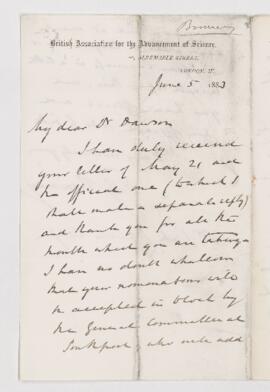 British Association for the Advancement of Science.
ALBEMARLE STREET,
LONDON, W.
June 5 1883
My dear Dr Dawson
I have duly received
your letter of May 21 and
the official one (to which I
shall make a separate reply)
and thank you for all the
trouble which you are taking
I have no doubt whatever
that your nominations will
be accepted in block by
the General Committee at
Southport, who will add